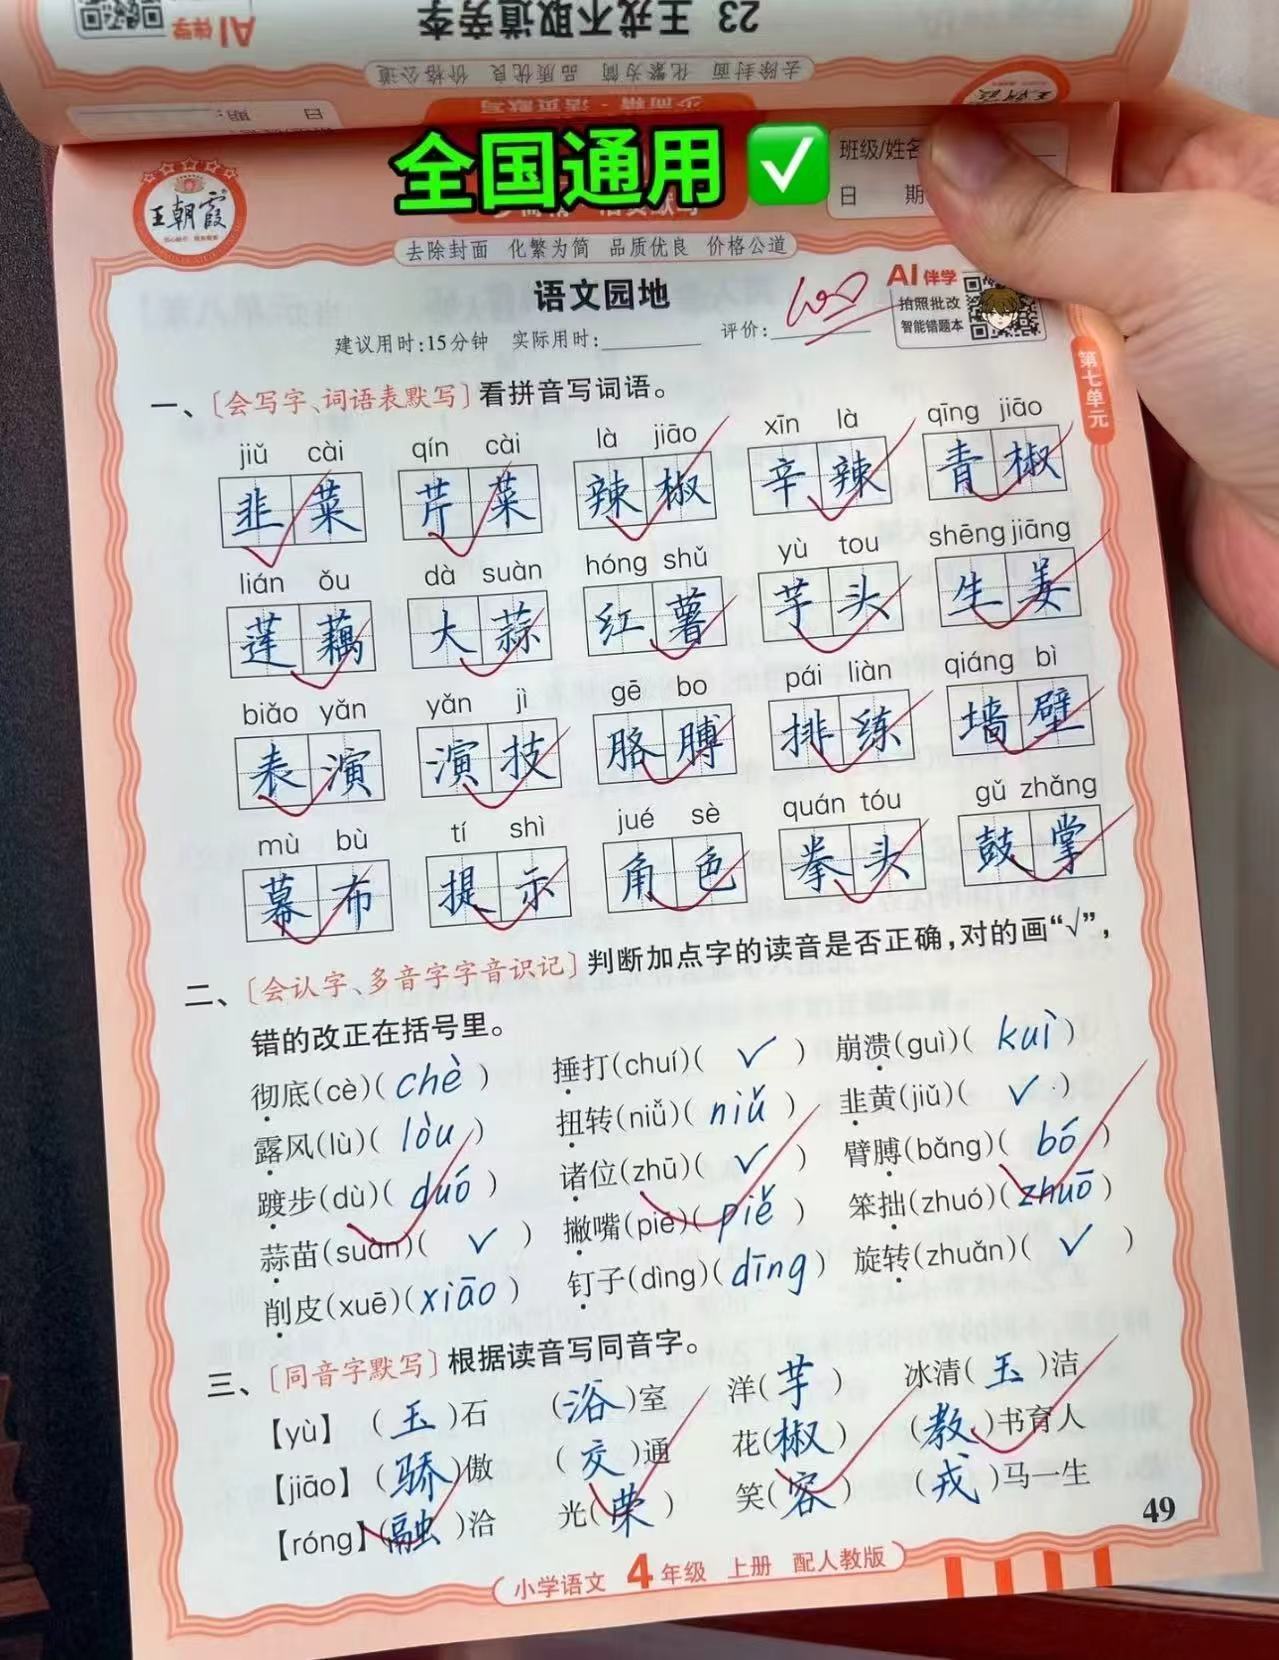 23 王戎不取道旁李
AI伴学
去除封面 化繁为简 品质优良 价格公道
少而精·活页默写
日 期:
王朝霞
全国通用 ✅
班级/姓名
日 期
王朝霞
去除封面 化繁为简 品质优良 价格公道
语文园地
AI伴学
拍照批改
智能错题本
建议用时:15分钟 实际用时: 评价: 100
第七单元
一、〔会写字、词语表默写〕看拼音写词语。
jiǔ cài qín cài là jiāo xīn là qīng jiāo
韭菜 芹菜 辣椒 辛辣 青椒
lián ǒu dà suàn hóng shǔ yù tou shēng jiāng
莲藕 大蒜 红薯 芋头 生姜
biǎo yǎn yǎn jì gē bo pái liàn qiáng bì
表演 演技 胳膊 排练 墙壁
mù bù tí shì jué sè quán tóu gǔ zhǎng
幕布 提示 角色 拳头 鼓掌
二、〔会认字、多音字字音识记〕判断加点字的读音是否正确,对的画“√”,
错的改正在括号里。
彻底(cè)( chè ) 捶打(chuí)( ✓ ) 崩溃(guì)( kuì )
露风(lù)( lòu ) 扭转(niǔ)( niǔ ) 韭黄(jiǔ)( ✓ )
踱步(dù)( duó ) 诸位(zhū)( ✓ ) 臂膊(bǎng)( bó )
蒜苗(suàn)( ✓ ) 撇嘴(piē)( piě ) 笨拙(zhuó)( zhuō )
削皮(xuē)( xiāo ) 钉子(dìng)( dīng ) 旋转(zhuǎn)( ✓ )
三、〔同音字默写〕根据读音写同音字。
【yù】 ( 玉 )石 ( 浴 )室 洋( 芋 ) 冰清( 玉 )洁
【jiāo】 ( 骄 )傲 ( 交 )通 花( 椒 ) ( 教 )书育人
【róng】 ( 融 )洽 光( 荣 ) 笑( 容 ) ( 戎 )马一生
49
小学语文 4年级 上册 配人教版